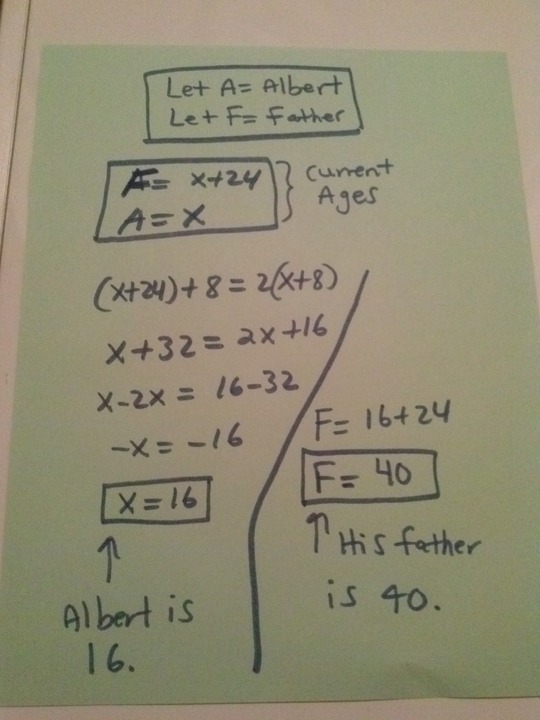 Let A= Albert
Let F= Father
F= x+24
A= X
Current
Ages
(x+24)+8=2(x+8)
x+32= 2x+16
x-2x= 16-32
-x= -16
x=16
Albert is
16.
F= 16+24
F= 40
His father
is 40.